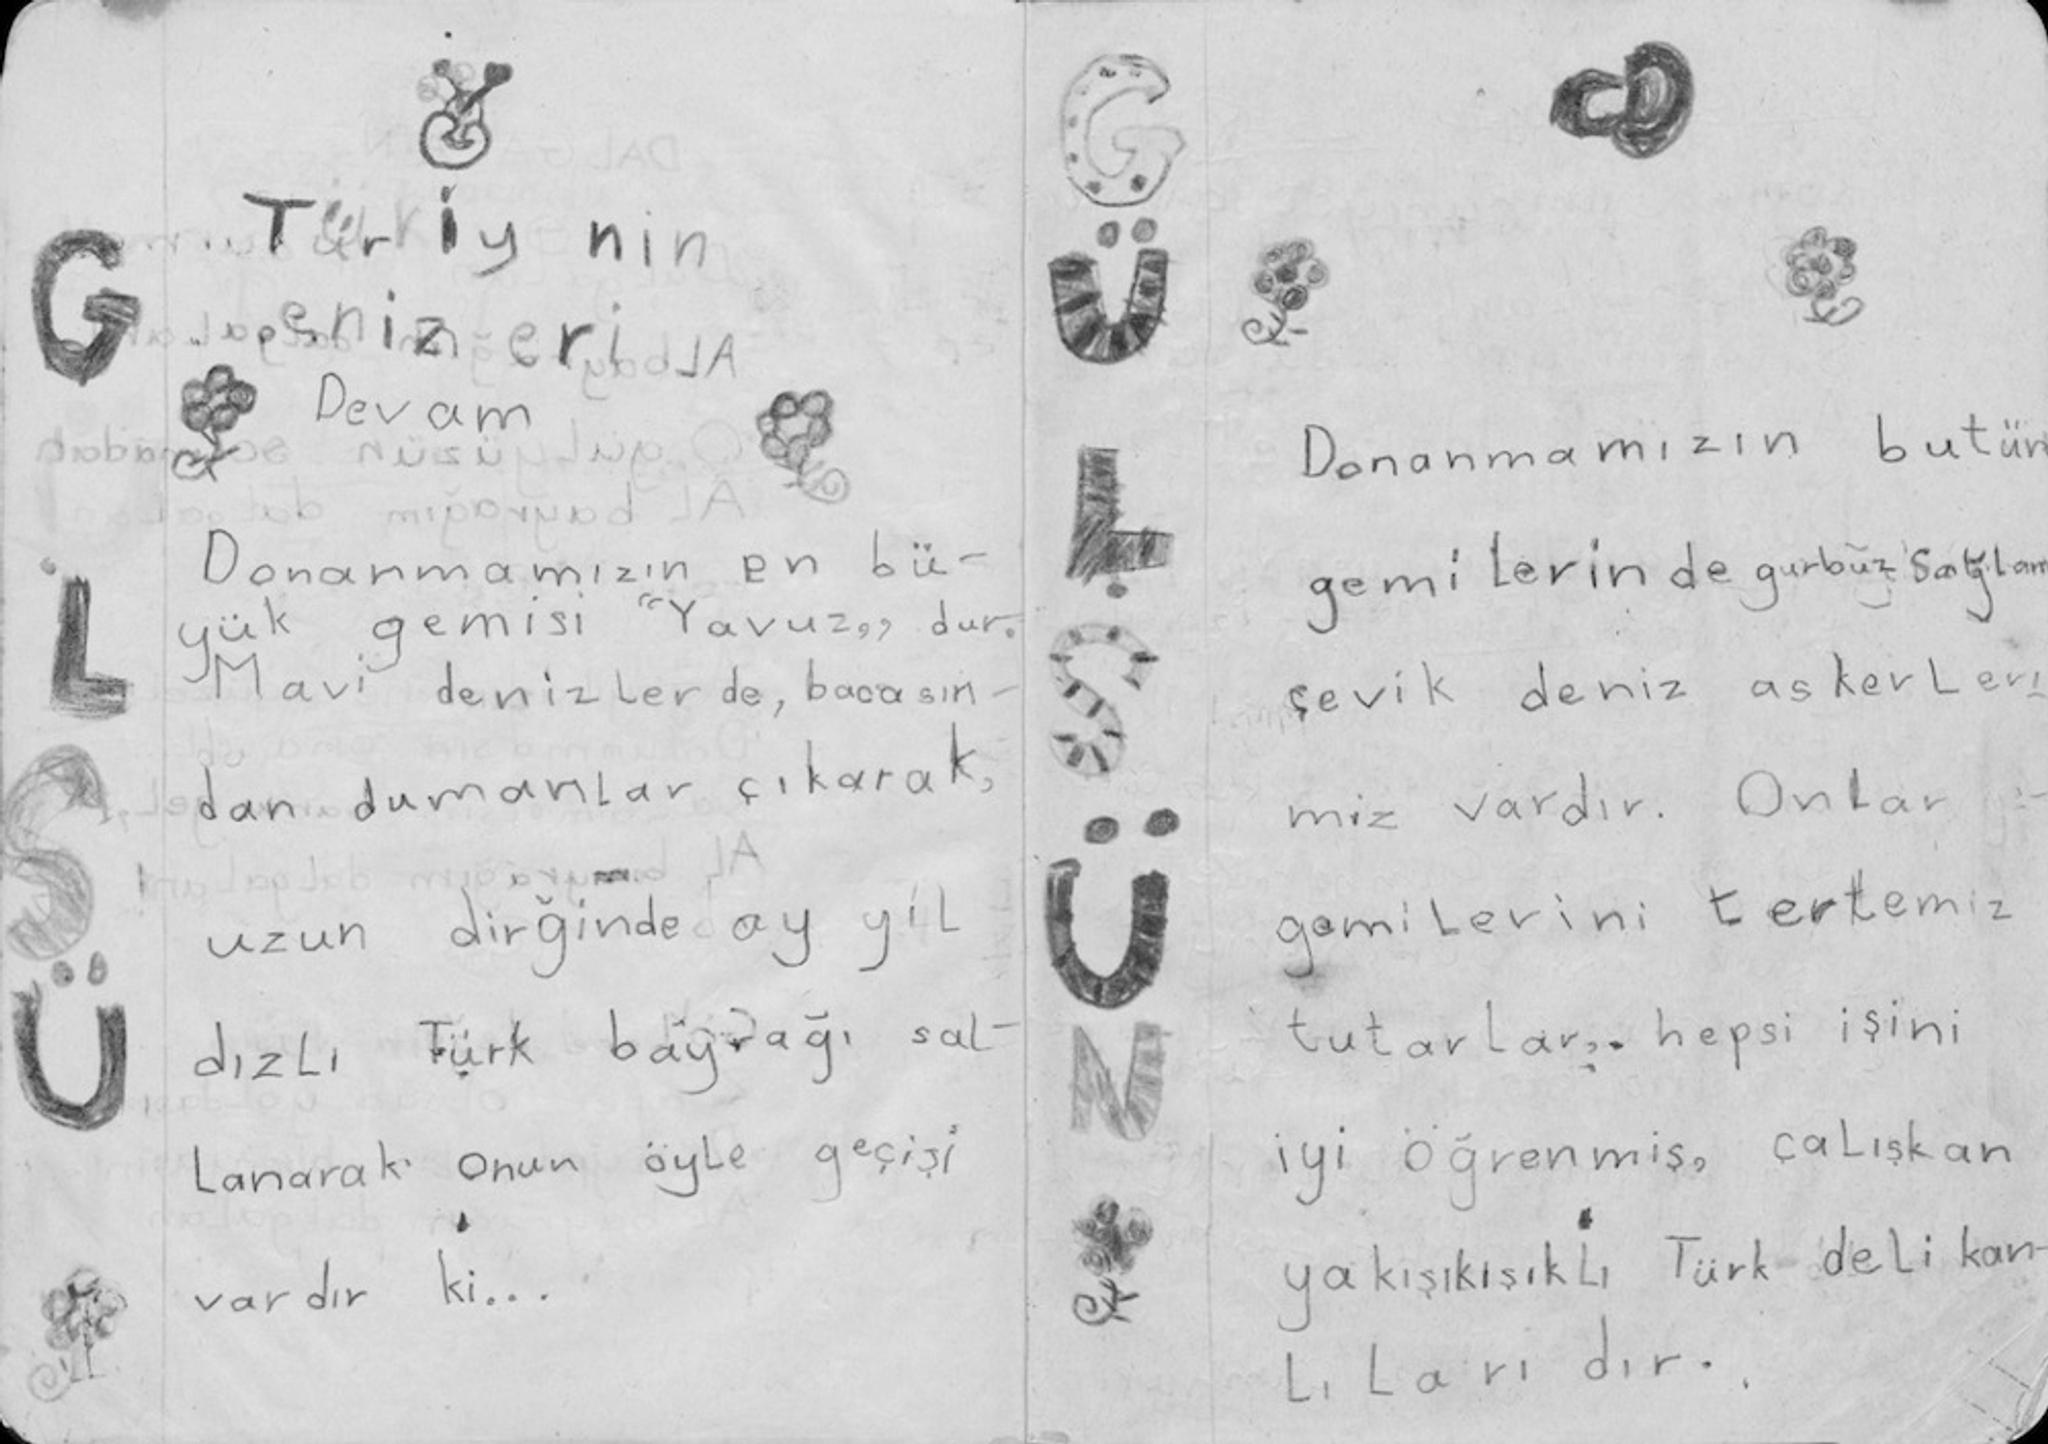 Tür iy nin
eniz eri
Devam
Donanmamızın en bü-
yük gemisi "Yavuz,, dur.
Mavi denizlerde, bacasın-
dan dumanlar çıkarak,
uzun dirğinde ay yıl
dızlı Türk bayrağı sal-
lanarak onun öyle geçişi
vardır ki...
G
L
S
Ü
G
Ü
L
S
Ü
N
Donanmamızın butün
gemilerinde gurbüz sağlam
çevik deniz askerleri
miz vardır. Onlar
gemilerini tertemiz
tutarlar,. hepsi işini
iyi öğrenmiş, çalışkan
yakışıkışıklı Türk delikan-
lıları dır.